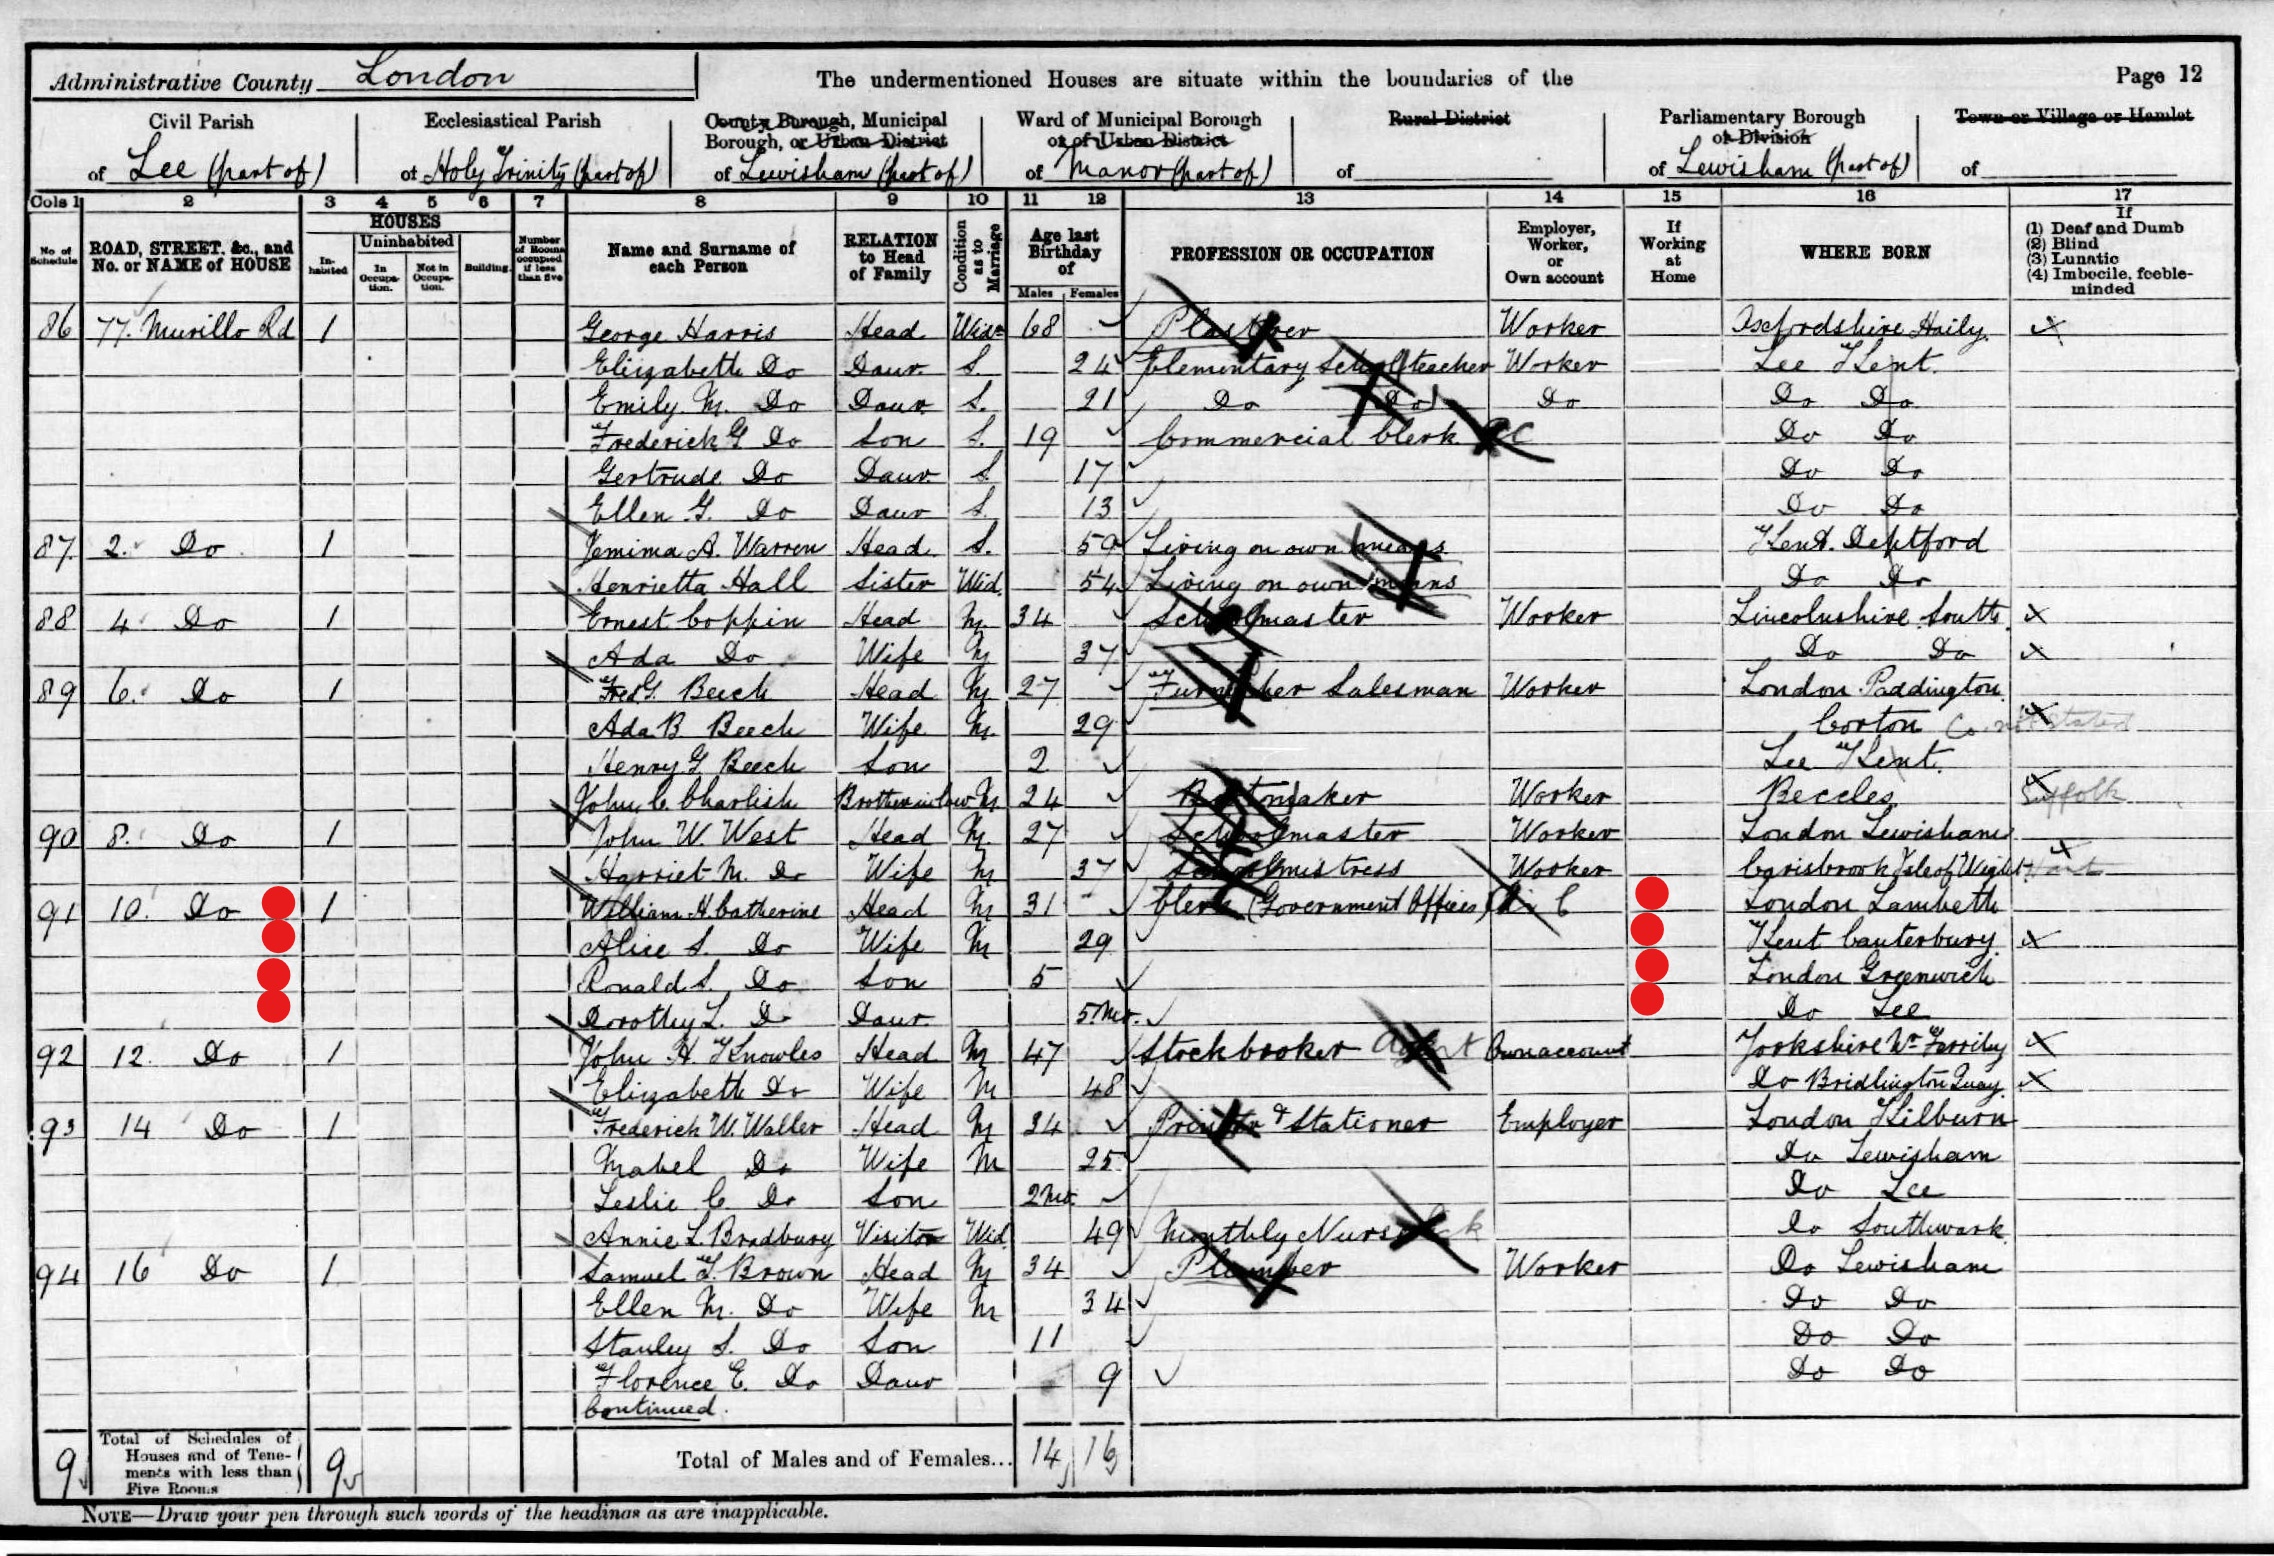 Administrative County London
The undermentioned Houses are situate within the boundaries of the
Page 12
Civil Parish
of Lee (part of)
Ecclesiastical Parish
of Holy Trinity (part of)
County Borough, Municipal
Borough, or Urban District
of Lewisham (part of)
Ward of Municipal Borough
or of Urban District
of Manor (part of)
Rural District
of
Parliamentary Borough
or Division
of Lewisham (part of)
Town or Village or Hamlet
of
Cols 1 2 3 4 5 6 7 8 9 10 11 12 13 14 15 16 17
No of Schedule
ROAD, STREET, &c., and No. or NAME of HOUSE
HOUSES
In-habited
Uninhabited
In Occupa-tion.
Not in Occupa-tion.
Building.
Number of Rooms occupied if less than five
Name and Surname of each Person
RELATION to Head of Family
Condition as to Marriage
Age last Birthday of
Males Females
PROFESSION OR OCCUPATION
Employer, Worker, or Own account
If Working at Home
WHERE BORN
If
(1) Deaf and Dumb
(2) Blind
(3) Lunatic
(4) Imbecile, feeble-minded
86 77. Murillo Rd 1 George Harris Head Widr 68 Plasterer Worker Oxfordshire Haily
Elizabeth Do Daur. S. 24 Elementary School teacher Worker Lee Kent.
Emily M. Do Daur. S. 21 Do Do Do Do Do
Frederick G Do Son S. 19 Commercial Clerk Do Do
Gertrude Do Daur. S 17 Do Do
Ellen G. Do Daur S. 13 Do Do
87. 2. Do 1 Jemima A. Warren Head S. 59 Living on own means Kent. Deptford
Henrietta Hall Sister Wid. 54 Living on own means Do Do
88 4 Do 1 Ernest Coppin Head M. 34 Schoolmaster Worker Lincolnshire South
Ada Do Wife M 37 Do Do
89 6. Do 1 Fred G. Beech Head M 27 Furnisher Salesman Worker London Paddington
Ada B Beech Wife M. 29 Corton Co. not stated
Henry G Beech Son 2 Lee Kent.
John C. Charlish Brother in law M 24 Bootmaker Worker Beccles Suffolk
90 8. Do 1 John W. West Head M. 27 Schoolmaster Worker London Lewisham
Harriet M. Do Wife M 37 Schoolmistress Worker Carisbrook Isle of Wight
91 10. Do 1 William H. Catherine Head M 31 Clerk (Government Offices) London Lambeth
Alice S. Do Wife M 29 Kent Canterbury
Ronald S. Do Son 5 London Greenwich
Dorothy L. Do Daur. 5 Mo. Do Lee
92 12 Do 1 John H. Knowles Head M 47 Stockbroker Agent Own account Yorkshire Nr. Ferriby
Elizabeth Do Wife M 48 Do Bridlington Quay
93 14 Do 1 Frederick W. Waller Head M 34 Printer & Stationer Employer London Kilburn
Mabel Do Wife M 25 Do Lewisham
Leslie C Do Son 2 Mo. Do Lee
Annie L. Bradbury Visitor Wid. 49 Monthly Nurse Sick Do Southwark
94 16 Do 1 Samuel T. Brown Head M 34 Plumber Worker Do Lewisham
Ellen M. Do Wife M 34 Do Do
Stanley S. Do Son 11 Do Do
Florence E. Do Daur 9 Do Do
Continued.
9 Total of Schedules of Houses and of Tene-ments with less than Five Rooms 9 Total of Males and of Females... 14 16
NOTE—Draw your pen through such words of the headings as are inapplicable.